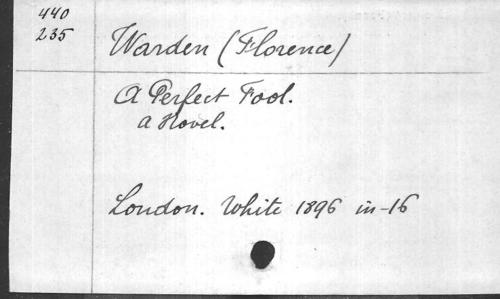 440
235
Warden (Florence)
A Perfect Fool.
a Novel.
London. White 1896 in-16